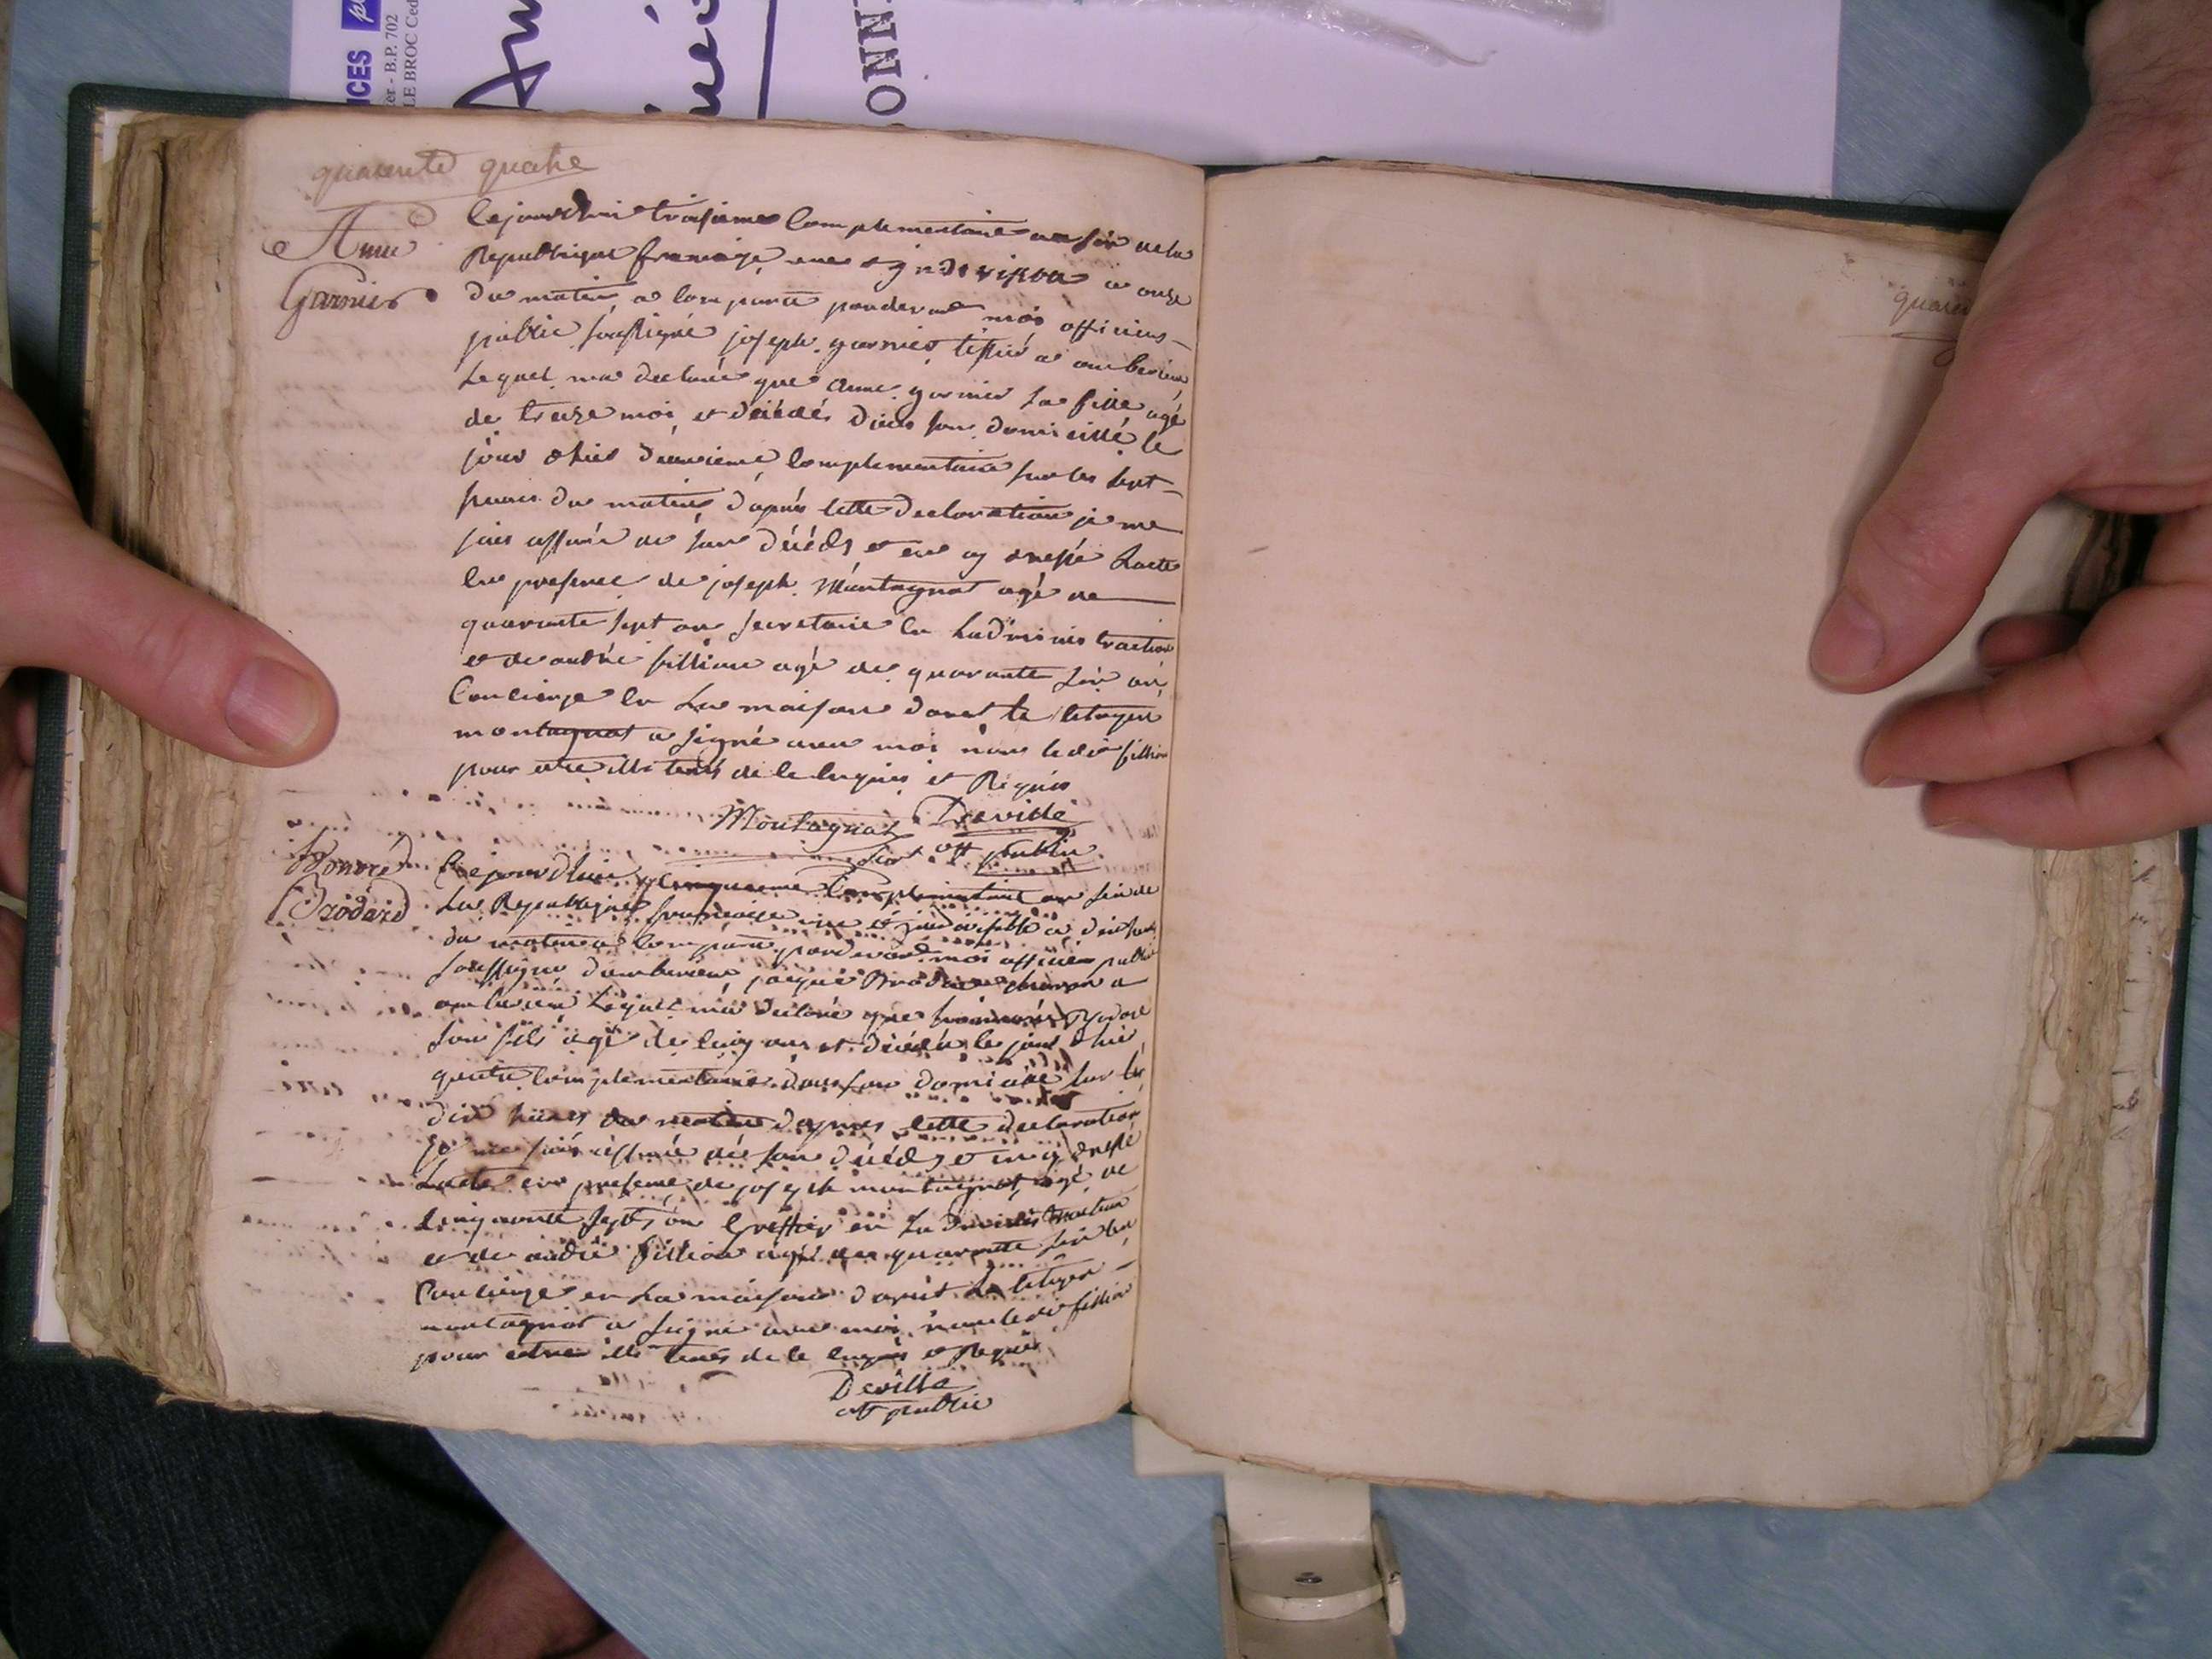 ICES
B.P. 702
LE BROC Ced
ONN
quarente quatre
Anne
Garnier
Cejourdhui troisieme Complementaire an six de la
Republique francaise une et indivisible a onze
du matin a comparu pardevant moi officier
public soussigné joseph garnier tissier a amberieu
Lequel ma declaré que anne garnier sa fille agé
de treize moi et décédés dieu son domicille le
jour d'hier deuxieme complementaire sur les sept
heures du matin d'aprés cette declaration je me
suis assuré de son décéds et en ay dressé Lacte
en presence de joseph Montagnat agé de
quarante sept an secretaire en Ladministraction
et de andré fillion agé de quarante six an
Concierge en La maison donst le citoyen
montagnat a signé avec moi non ledit fillion
pour etre illiterés de ce enquis et Requis
Montagnat Deville
off public
Honoré
Brodard
Cejourdhui cinquieme Complementaire an six de
La Republique francaise une et indivisible a dix heures
du matin a comparu pardevant moi officier public
soussigné damberieux jaque Brodard a
amberieu Lequel ma declaré que honnoré Brodard
son fils agé de cinq ans et décédé le jour d'hier
quatre complementaire dans son domicile sur les
dix heures du matin d'apres cette declaration
je me suis assuré de son décéds et en ay dressé
Lacte en presence de joseph montagnat agé de
quarante septs an Greffier en Ladministraction
et de andré fillion agé de quarante six an
Concierge en La maison donst Le citoyen
montagnat a signé avec moi non ledit fillion
pour etre illiterés de ce enquis et Requis
Deville
off public
quaran